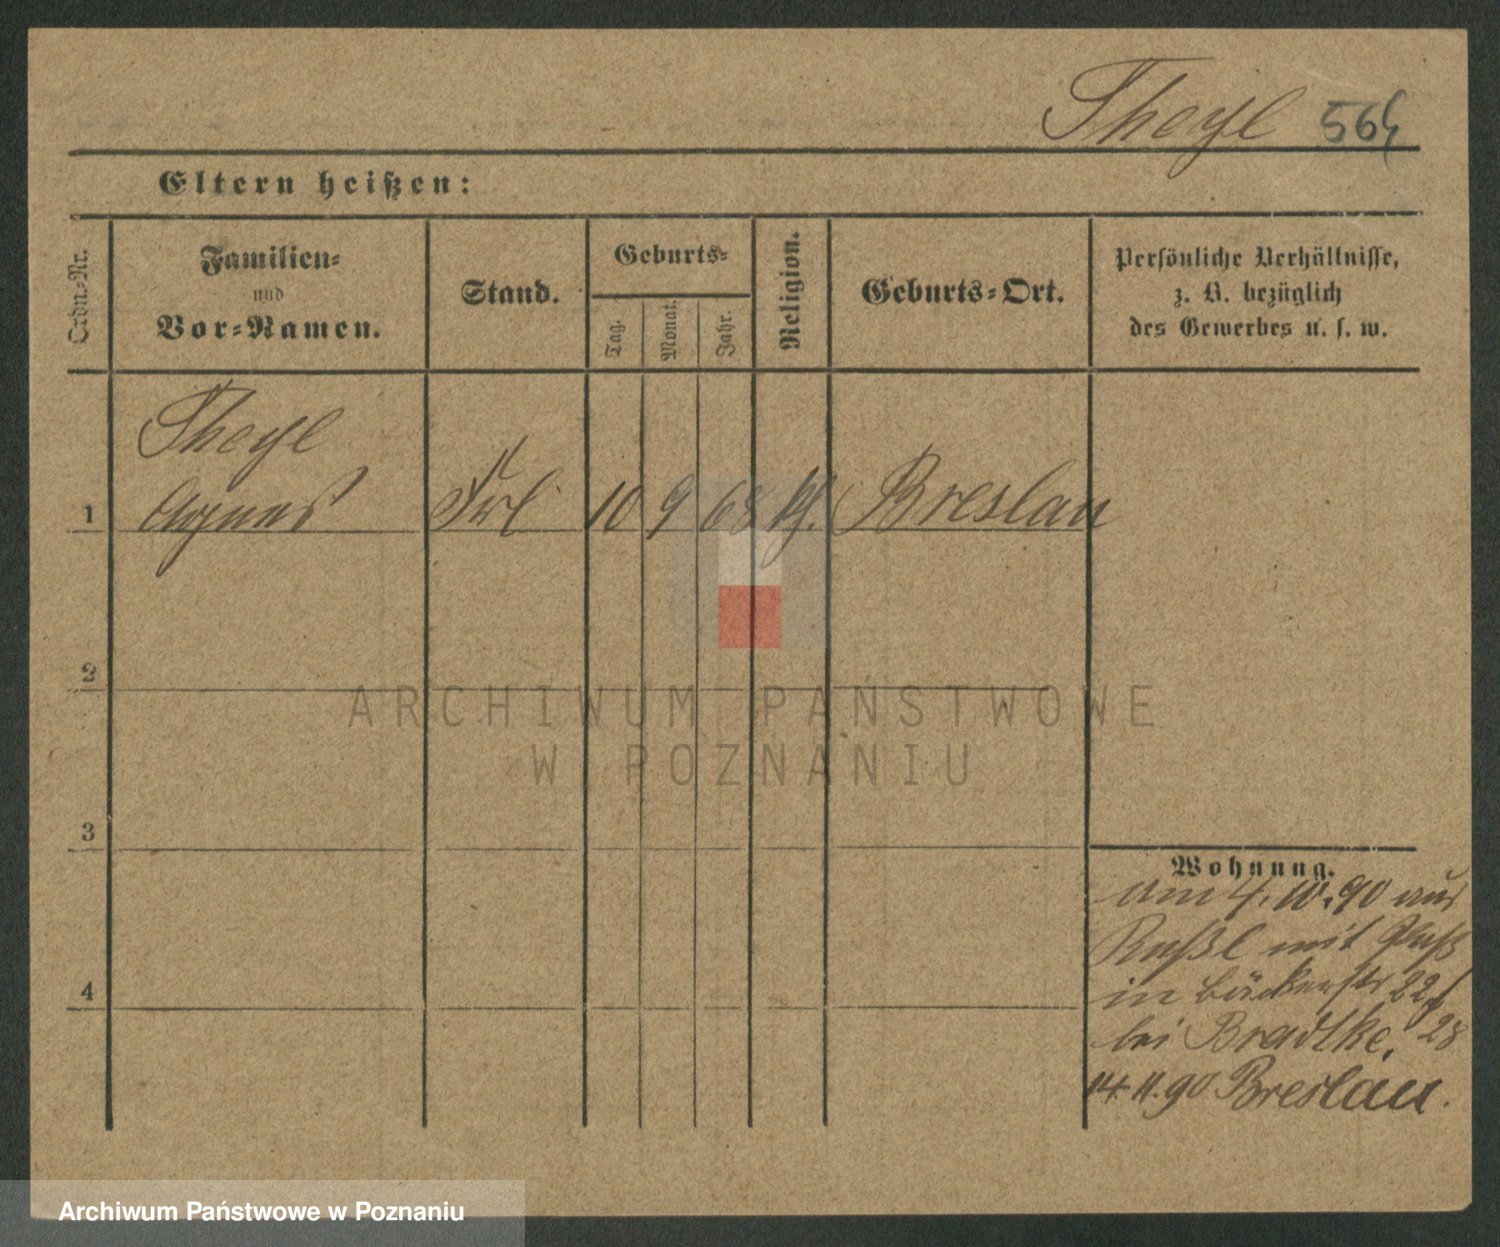 Theyl 564
Eltern heißen:
Ordn.-Nr.
Familien-
und
Vor-Namen.
Stand.
Geburts-
Tag.
Monat.
Jahr.
Religion.
Geburts-Ort.
Persönliche Verhältnisse,
z. B. bezüglich
des Gewerbes u. s. w.
Theyl
1 Agnes Frl 10 9 68 Breslau
2
3
4
Wohnung.
Am 4. 10. 90 aus
Rußl mit Paß
in Bäckerstr 22
bei Bradtke. 28
14 11. 90 Breslau.
ARCHIWUM PAŃSTWOWE
W POZNANIU
Archiwum Państwowe w Poznaniu